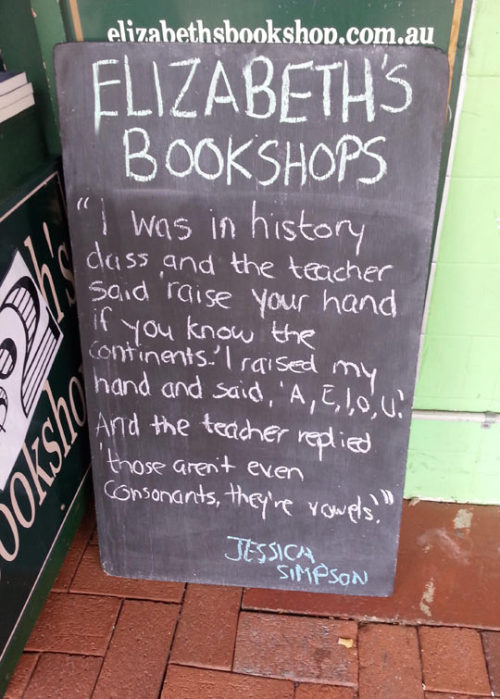 elizabethsbookshop.com.au
ELIZABETH'S
BOOKSHOPS
"I was in history
class and the teacher
said 'raise your hand
if you know the
continents.' I raised my
hand and said, 'A, E, I, O, U.'
And the teacher replied
'those aren't even
consonants, they're vowels.'"
JESSICA
SIMPSON
h's
ooksho